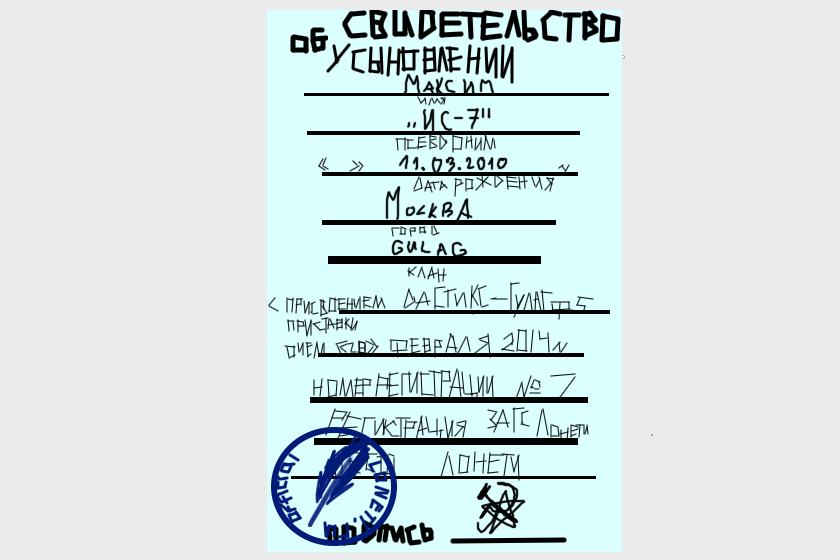 СВИДЕТЕЛЬСТВО
ОБ
УСЫНОВЛЕНИИ
МАКСИМ
ИМЯ
„ИС-7"
ПСЕВДОНИМ
« » 11.03.2010
ДАТА РОЖДЕНИЯ
МОСКВА
ГОРОД
GULAG
КЛАН
С ПРИСВОЕНИЕМ
ПРИСТАВКИ
«28» ФЕВРАЛЯ 2014
НОМЕР РЕГИСТРАЦИИ № 7
РЕГИСТРАЦИЯ ЗАГС ЛОНЕТИ
ЛОНЕТИ
OFFICIAL
LONETI
ПОДПИСЬ